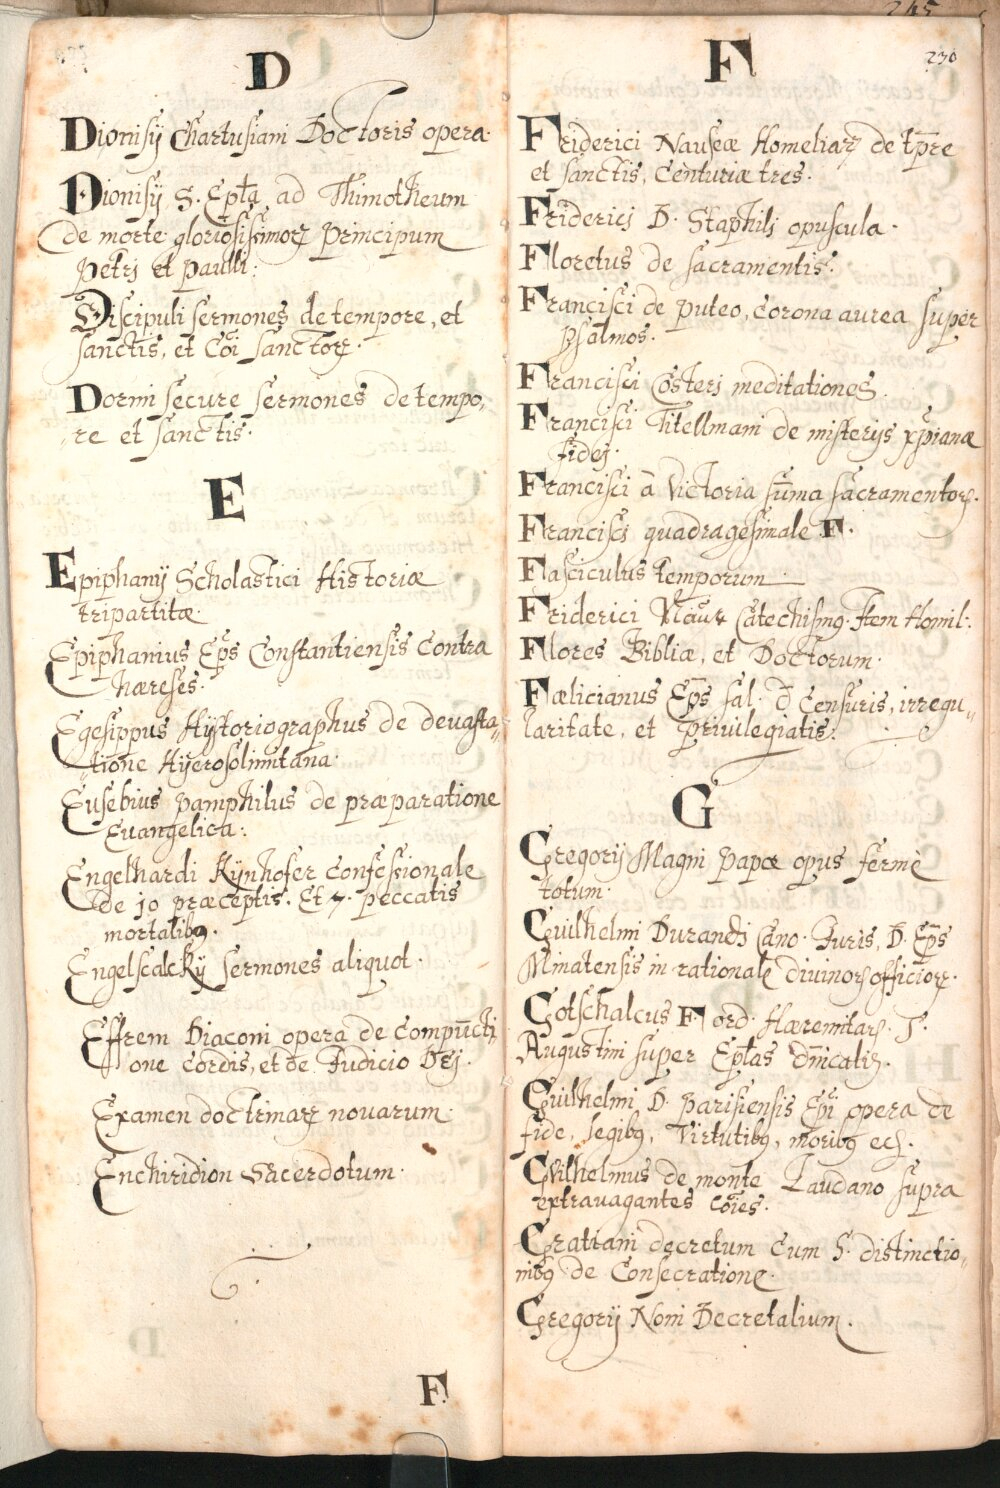 D
Dionisij Chartusiani Doctoris opera
Dionisij S. Epła ad Thimotheum
de morte gloriosissimorꝝ principum
Petrj et Paulli:
Discipuli sermones de tempore, et
sanctis, et Cōi sanctorꝝ.
Dormi secure sermones de tempo,,
,,re et sanctis.
E
Epiphanij Scholastici Historiæ
tripartitæ.
Epiphanius Ep̄s Constantiensis contra
hæreses.
Egesippus Hystoriographus de deuasta,,
,,tione Hyerosolimitana.
Eusebius Pamphilus de præparatione
Euangelica:
Engelhardi Kÿnhofer confessionale
de 10 præceptis. Et 7. peccatis
mortalibꝰ.
Engelscalckij sermones aliquot.
Effrem Diaconi opera de compūcti
one cordis, et de Judicio Dej.
Examen doctrinarꝝ nouarum.
Enchiridion Sacerdotum.
F.
245
230
F
Friderici Nauseæ Homeliarꝝ de tp̄re
et sanctis, Centuriæ tres.
Fridericj D. Staphilj opuscula.
Floretus de sacramentis.
Francisci de puteo, corona aurea super
Psalmos.
Francisci Costerj meditationes.
Francisci Titellmani de misterijs xp̄ianæ
fidej.
Francisci à Victoria sūma sacramentorꝝ.
Francisci quadragesimale F.
Fasciculus temporum.
Friderici Nauꝝ Catechismꝰ. Item Homil:.
Flores Bibliæ, et Doctorum.
Fælicianus Ep̄s sal. d̄ Censuris, irregu,,
laritate, et Priuilegiatis.
G
Gregorij Magni Papæ opus fermè
totum.
Guilhelmi Durandi Cano. Juris, D. Ep̄s
Minatensis in rationale diuinorꝝ officiorꝝ.
Gotschalcus F ord. Hæremitarꝝ. S.
Augustini super Ep̄tas dn̄icalꝫ.
Guilhelmi D. Parisiensis Ep̄i opera de
fide, legibꝰ, Virtutibꝰ, moribꝰ ec.
Gvilhelmus de monte Laudano supra
extrauagantes cōies.
Gratiani decretum cum S. distinctio,,
nibꝰ de Consecratione.
Gregorij Noni Decretalium.